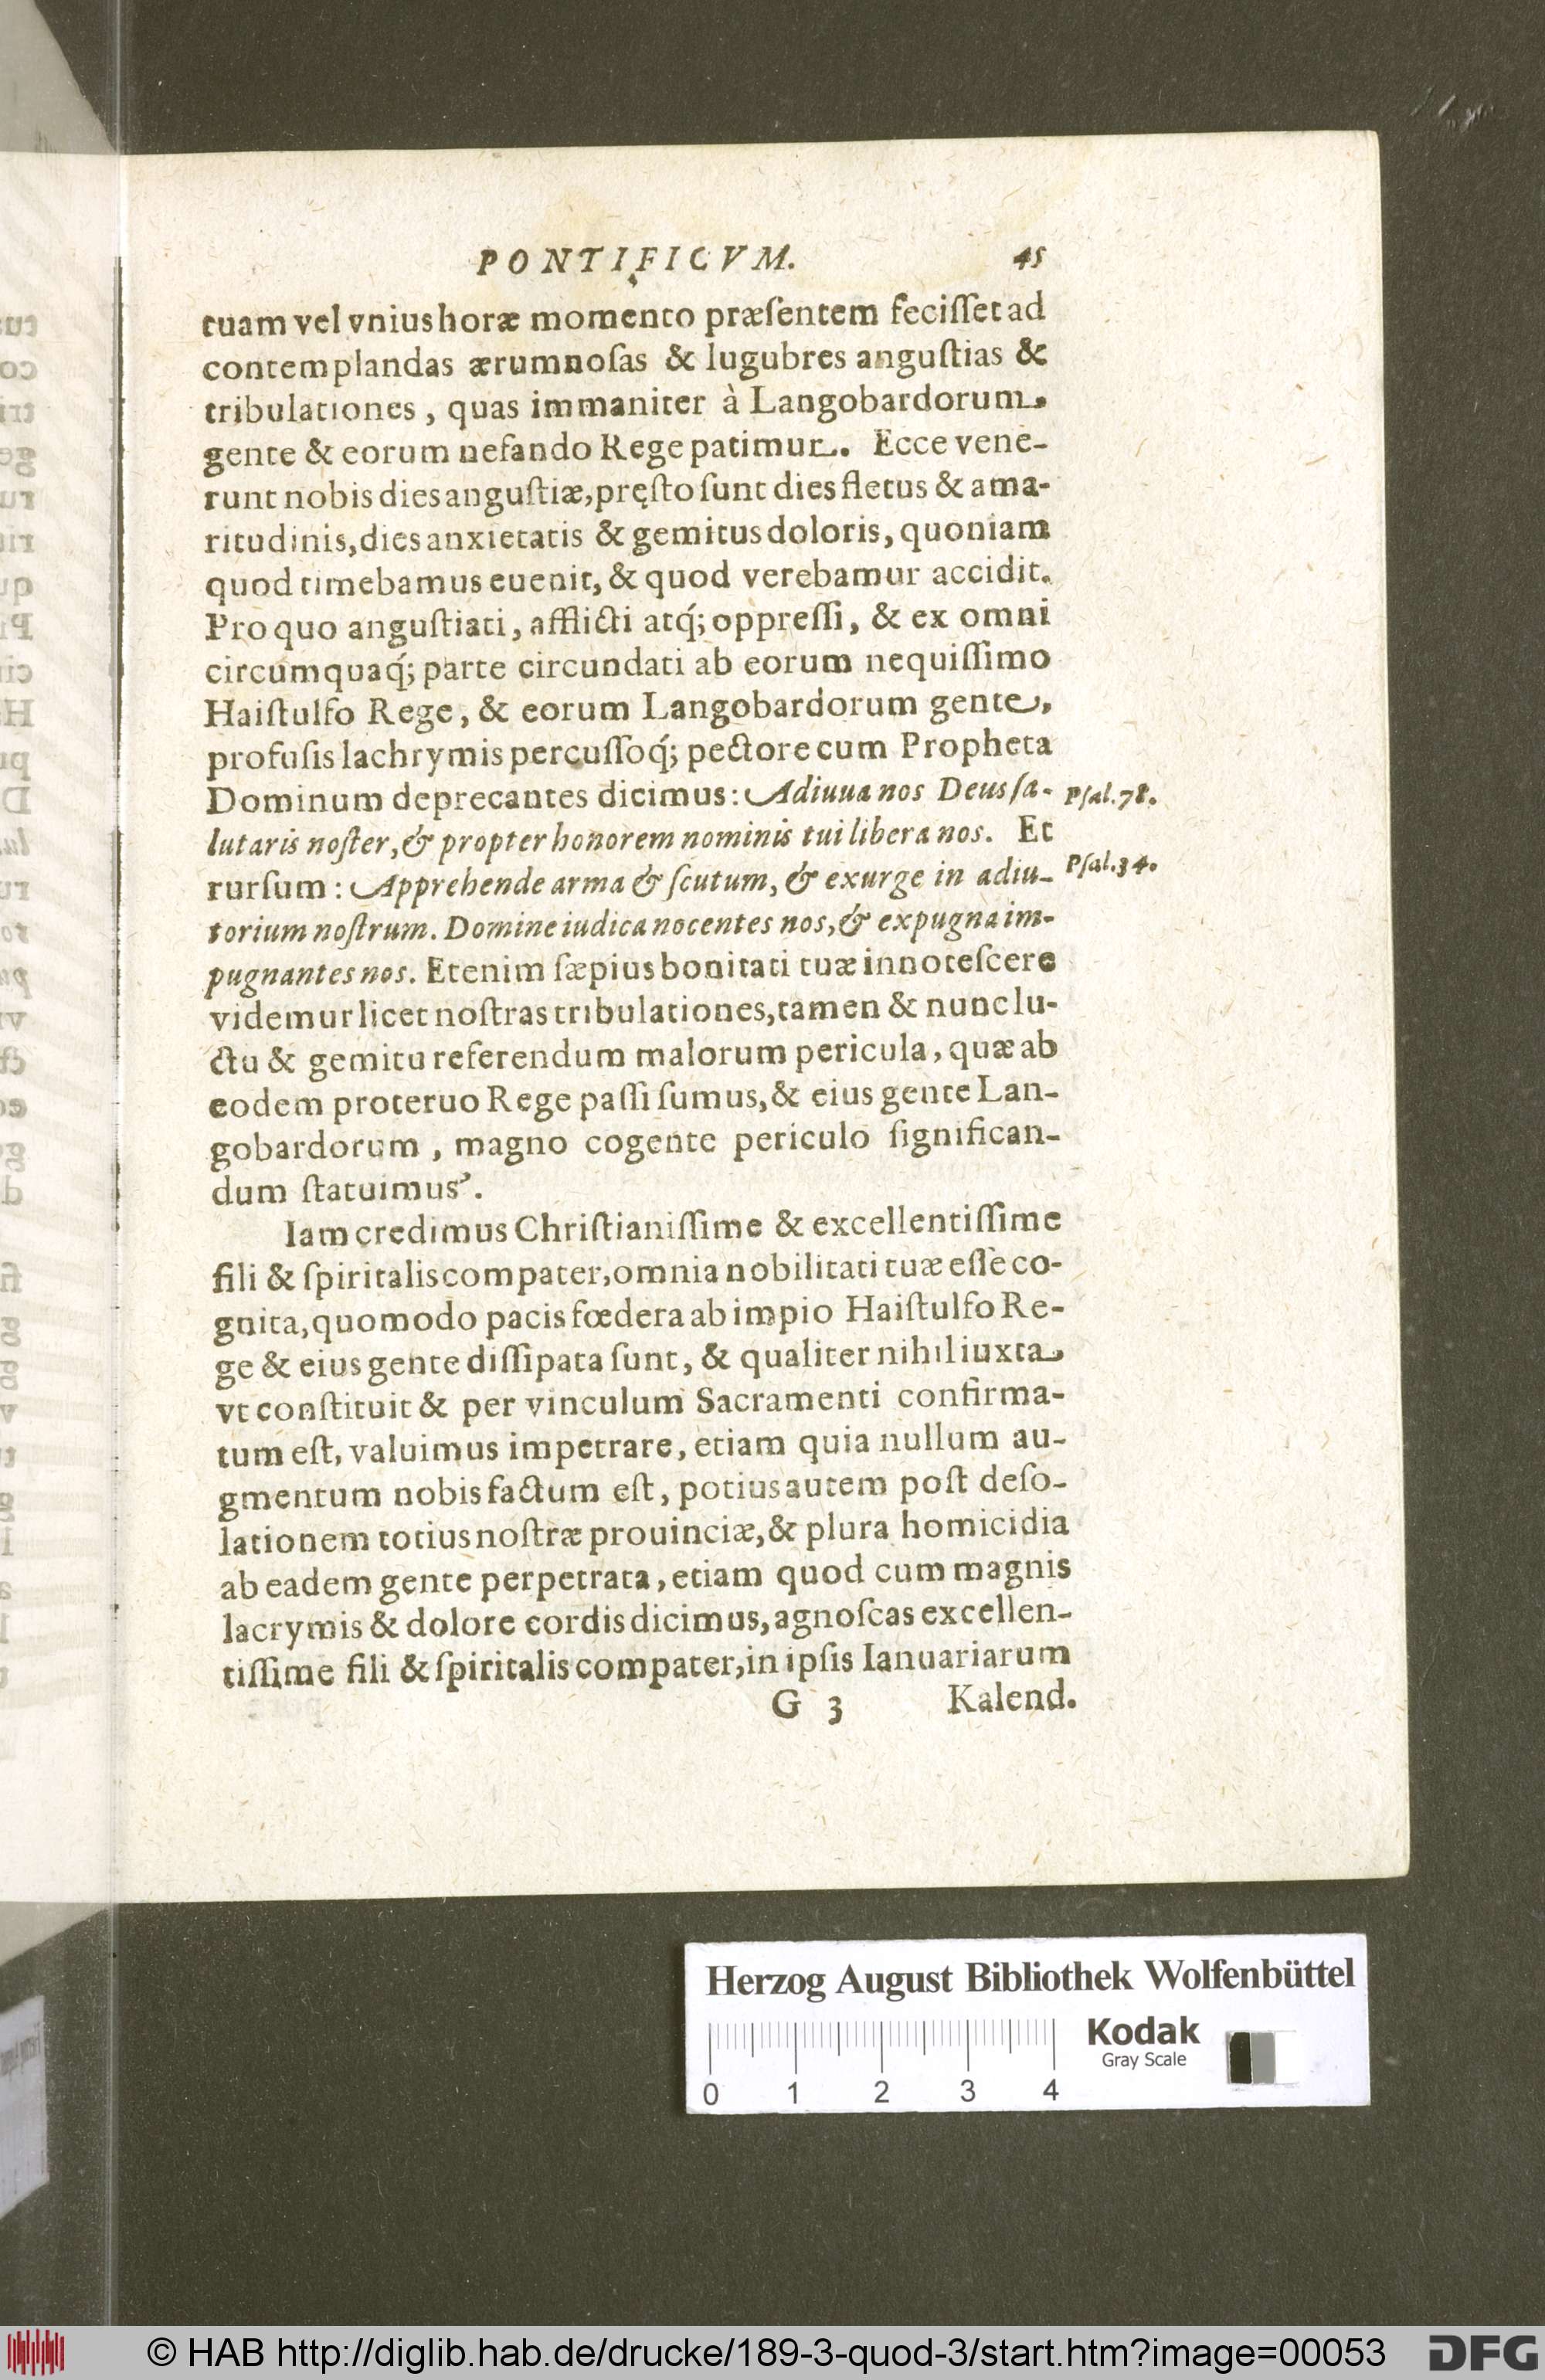 PONTIFICVM. 45
tuam vel vnius horæ momento præſentem feciſſet ad
contemplandas ærumnoſas & lugubres anguſtias &
tribulationes, quas immaniter à Langobardorum,
gente & eorum nefando Rege patimur. Ecce vene-
runt nobis dies anguſtiæ, pręſto ſunt dies fletus & ama-
ritudinis, dies anxietatis & gemitus doloris, quoniam
quod timebamus euenit, & quod verebamur accidit.
Pro quo anguſtiati, afflicti atq́; oppreſſi, & ex omni
circumquaq́; parte circundati ab eorum nequiſſimo
Haiſtulfo Rege, & eorum Langobardorum gente,
profuſis lachrymis percuſſoq́; pectore cum Propheta
Dominum deprecantes dicimus: Adiuua nos Deus ſa- Pſal. 78.
lutaris noſter, & propter honorem nominis tui libera nos. Et
rurſum: Apprehende arma & ſcutum, & exurge in adiu- Pſal. 34.
torium noſtrum. Domine iudica nocentes nos, & expugna im-
pugnantes nos. Etenim ſæpius bonitati tuæ innoteſcere
videmur licet noſtras tribulationes, tamen & nunc lu-
ctu & gemitu referendum malorum pericula, quæ ab
eodem proteruo Rege paſſi ſumus, & eius gente Lan-
gobardorum, magno cogente periculo ſignifican-
dum ſtatuimus.
Iam credimus Chriſtianiſſime & excellentiſſime
fili & ſpiritalis compater, omnia nobilitati tuæ eſſe co-
gnita, quomodo pacis fœdera ab impio Haiſtulfo Re-
ge & eius gente diſſipata ſunt, & qualiter nihil iuxta
vt conſtituit & per vinculum Sacramenti confirma-
tum eſt, valuimus impetrare, etiam quia nullum au-
gmentum nobis factum eſt, potius autem poſt deſo-
lationem totius noſtræ prouinciæ, & plura homicidia
ab eadem gente perpetrata, etiam quod cum magnis
lacrymis & dolore cordis dicimus, agnoſcas excellen-
tiſſime fili & ſpiritalis compater, in ipſis Ianuariarum
G 3 Kalend.
Herzog August Bibliothek Wolfenbüttel
Kodak
Gray Scale
0 1 2 3 4
© HAB http://diglib.hab.de/drucke/189-3-quod-3/start.htm?image=00053 DFG